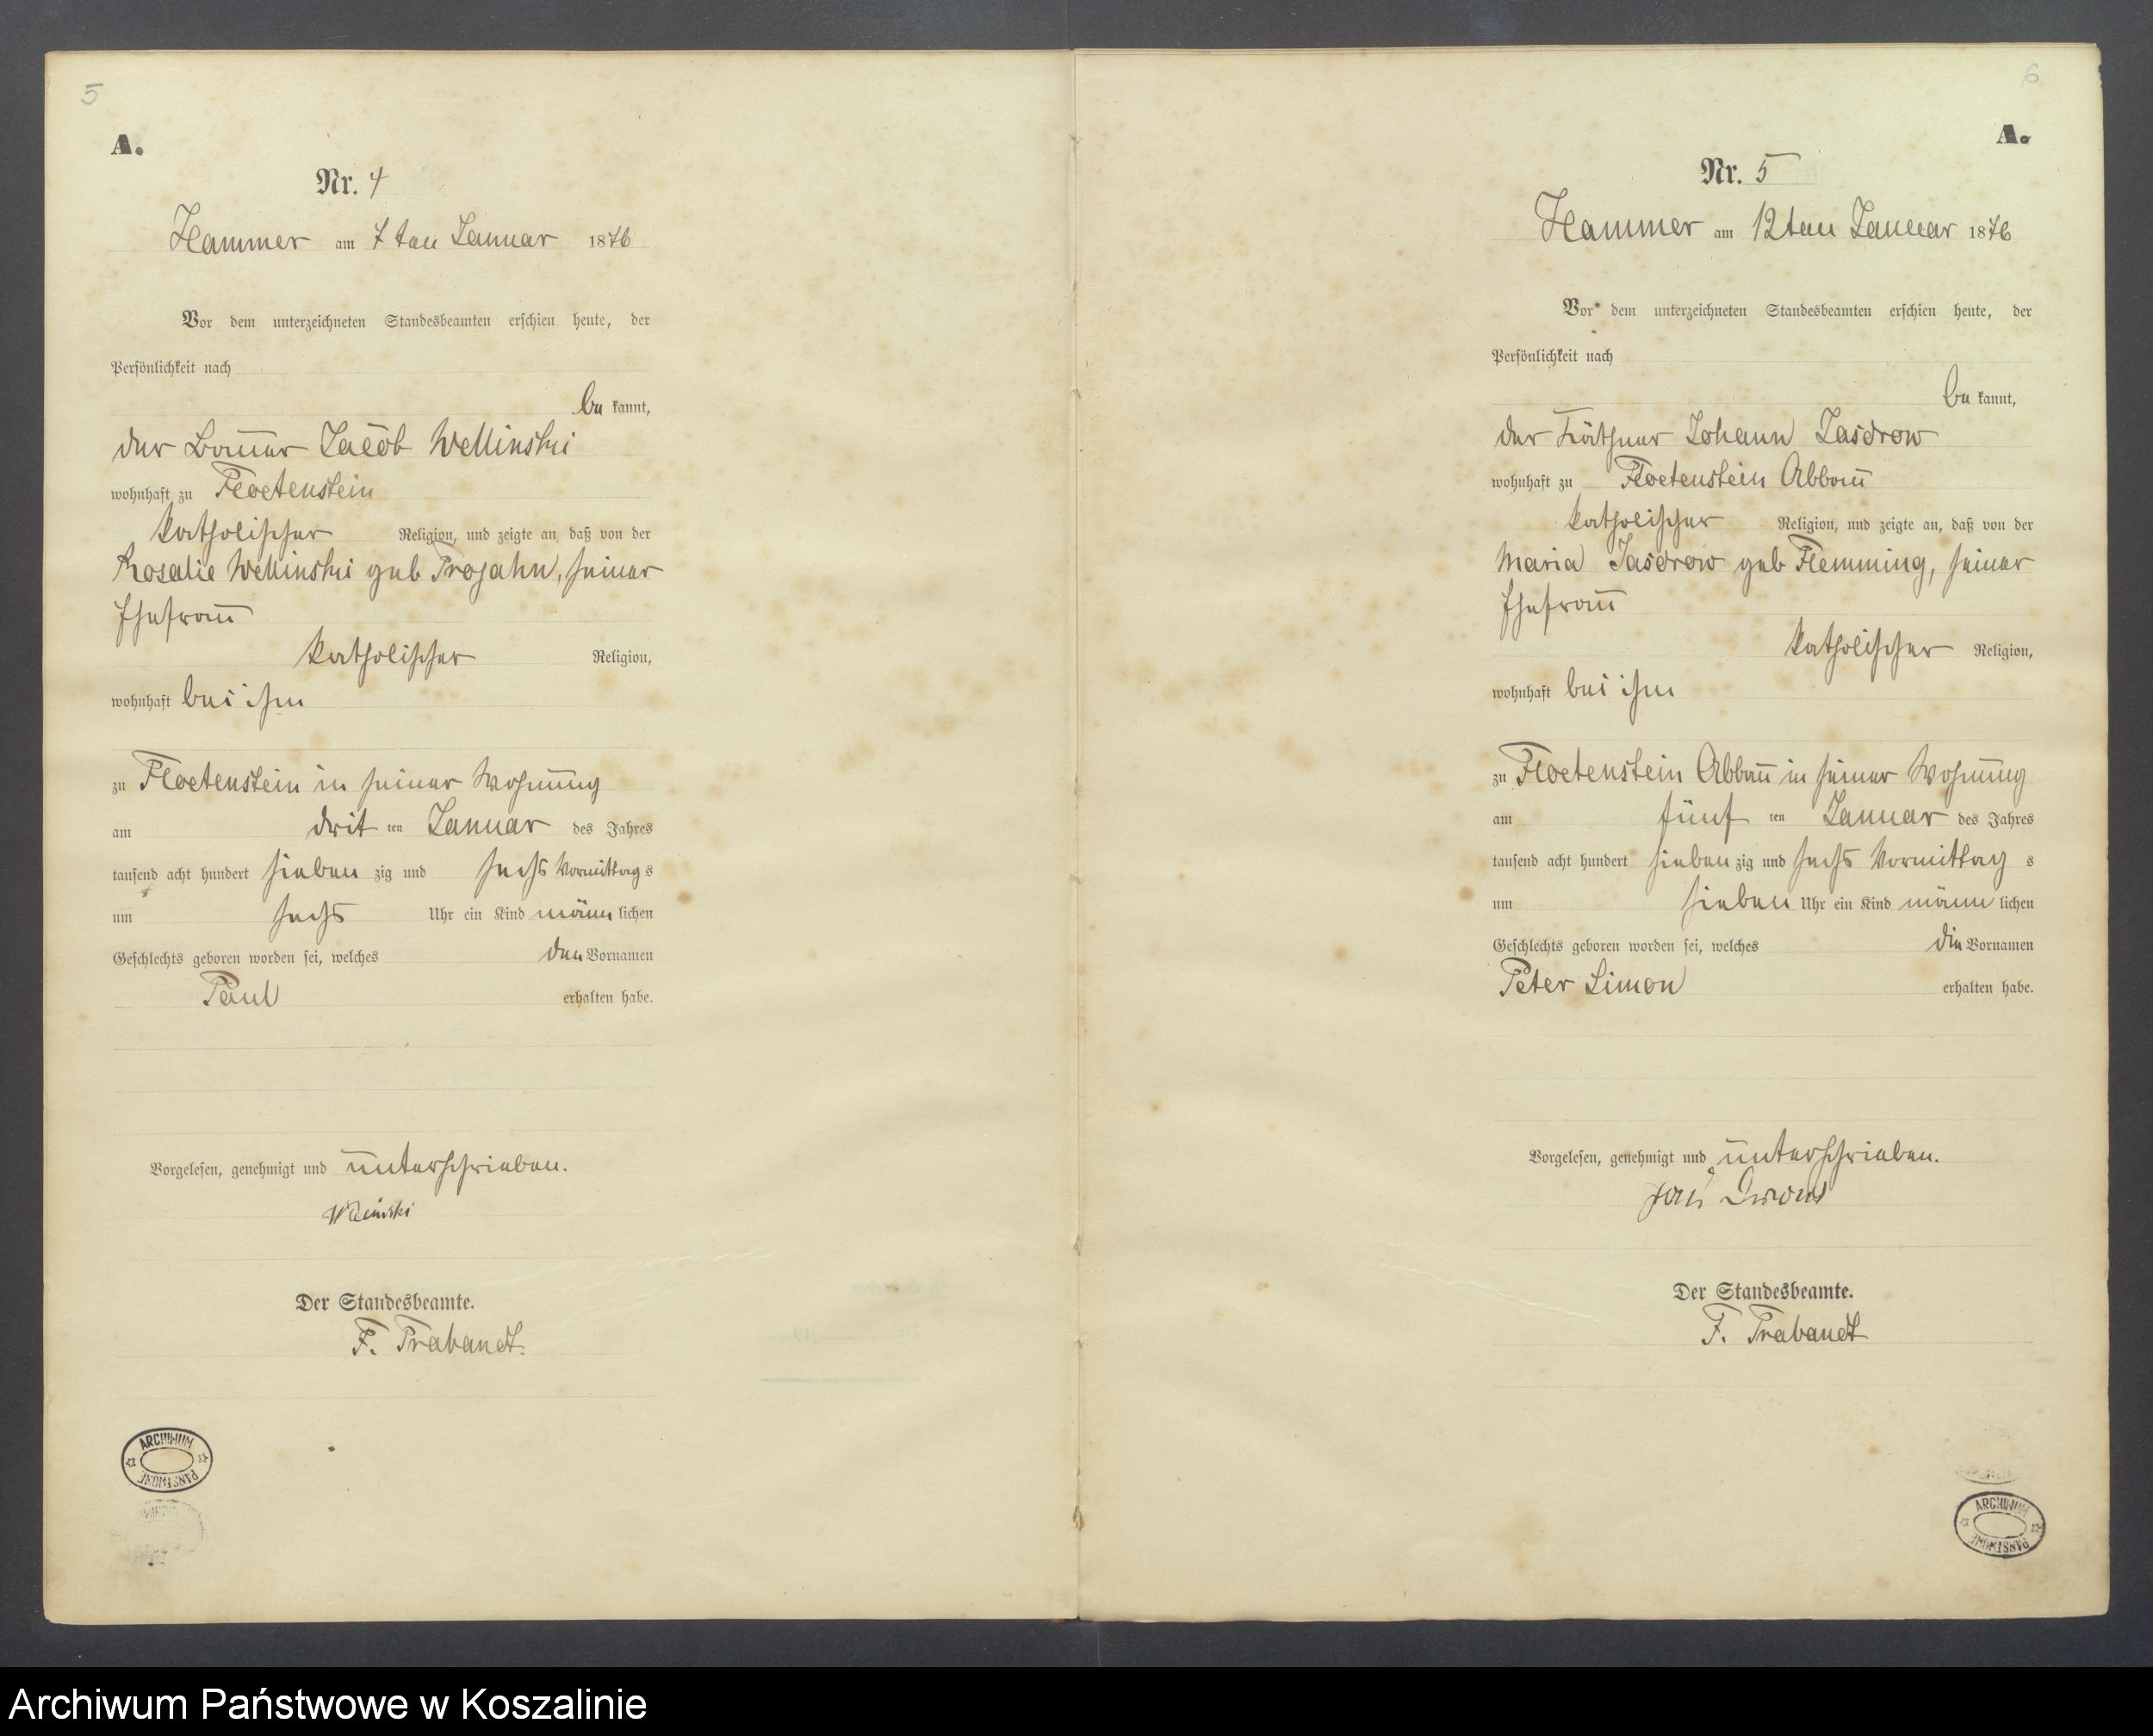 5
A.
Nr. 4
Hammer am 7ten Januar 1876
Vor dem unterzeichneten Standesbeamten erschien heute, der
Persönlichkeit nach
be kannt,
der Bauer Jacob Wellinski
wohnhaft zu Floetenstein
katholischer Religion, und zeigte an, daß von der
Rosalie Wellinski geb Projahn, seiner
Ehefrau
katholischer Religion,
wohnhaft bei ihm
zu Floetenstein in seiner Wohnung
am drit ten Januar des Jahres
tausend acht hundert sieben zig und sechs Vormittag s
um sechs Uhr ein Kind männ lichen
Geschlechts geboren worden sei, welches den Vornamen
Paul erhalten habe.
Vorgelesen, genehmigt und unterschrieben.
Der Standesbeamte.
F. Trabandt.
ARCHIWUM
PAŃSTWOWE
6
A.
Nr. 5
Hammer am 12ten Januar 1876
Vor dem unterzeichneten Standesbeamten erschien heute, der
Persönlichkeit nach
be kannt,
der Käthner Johann Jasdrow
wohnhaft zu Floetenstein Abbau
katholischer Religion, und zeigte an, daß von der
Maria Jasdrow geb Flemming, seiner
Ehefrau
katholischer Religion,
wohnhaft bei ihm
zu Floetenstein Abbau in seiner Wohnung
am fünf ten Januar des Jahres
tausend acht hundert sieben zig und sechs Vormittag s
um sieben Uhr ein Kind männ lichen
Geschlechts geboren worden sei, welches die Vornamen
Peter Simon erhalten habe.
Vorgelesen, genehmigt und unterschrieben.
Der Standesbeamte.
F. Trabandt
ARCHIWUM
PAŃSTWOWE
Archiwum Państwowe w Koszalinie